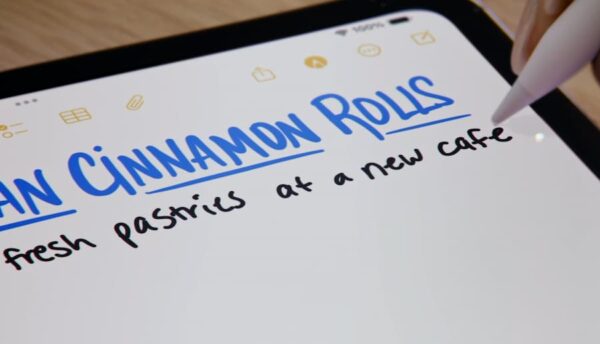 100%
AN CINNAMON ROLLS
fresh pastries at a new cafe